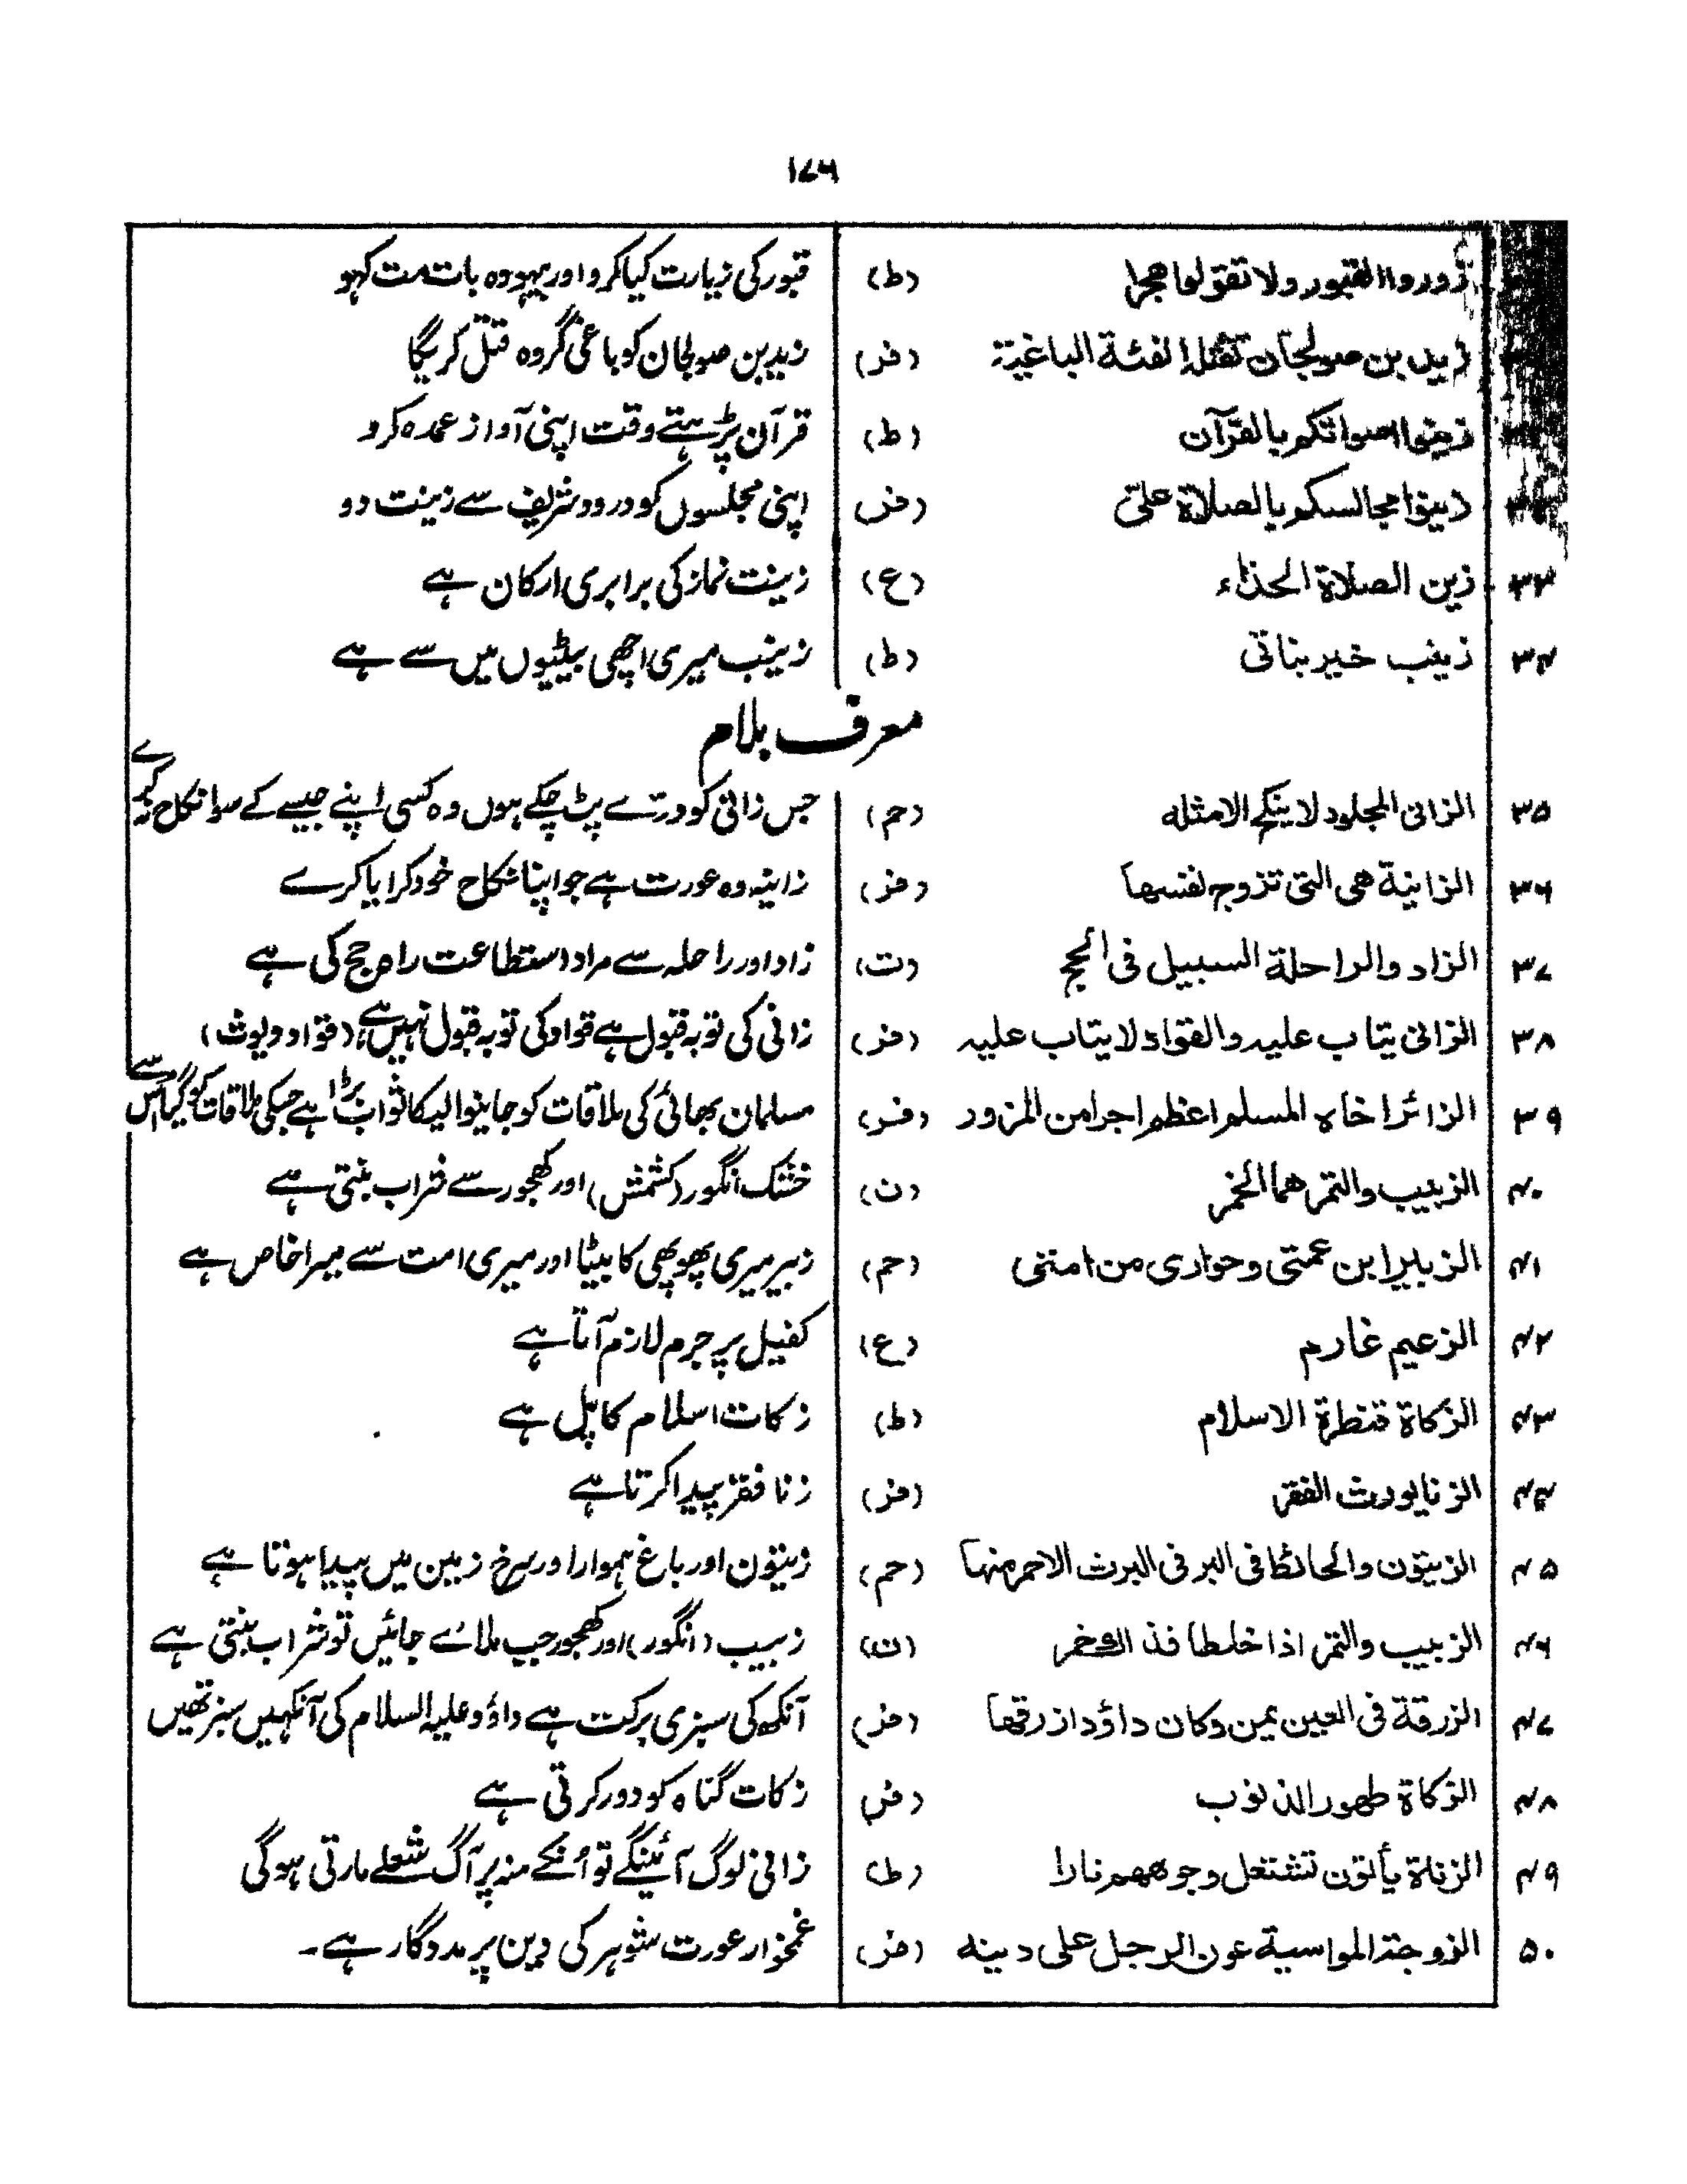 ۱۷۶
زوروا القبور ولا تقولوا هجرا (ط) قبور کی زیارت کیا کرو اور بیہودہ بات مت کہو
زید بن صولجان تقتله الفئة الباغیة (فر) زید بن صولجان کو باغی گروہ قتل کریگا
زینوا اصواتکم بالقرآن (ط) قرآن پڑہتے وقت اپنی آواز عمدہ کرو
زینوا مجالسکم بالصلاة علیّ (فر) اپنی مجلسوں کو درود شریف سے زینت دو
۳۳ زین الصلاة الحذاء (ع) زینت نماز کی برابری ارکان ہے
۳۴ زینب خیر بناتی (ط) زینب میری اچھی بیٹیوں میں سے ہے
معرف بلام
۳۵ الزانی المجلود لا ینکح الا مثله (حم) جس زانی کو درّے پٹ چکے ہوں وہ کسی اپنے جیسے کے سوا نکاح نہ کرے
۳۶ الزانیة هی التی تزوج نفسها (فر) زانیہ وہ عورت ہے جو اپنا نکاح خود کرایا کرے
۳۷ الزاد والراحلة السبیل فی الحج (ت) زاد اور راحلہ سے مراد استطاعت راہ حج کی ہے
۳۸ الزانی یتاب علیه والقواد لا یتاب علیه (فر) زانی کی توبہ قبول ہے قواد کی توبہ قبول نہیں ہے (قواد دیوث)
۳۹ الزائر اخاه المسلم اعظم اجرا من المزور (فر) مسلمان بھائی کی ملاقات کو جانیوالیکا ثواب بڑا ہے جسکی ملاقات کو گیا اس سے
۴۰ الزبیب والتمر هما الخمر (ن) خشک انگور (کشمش) اور کھجور سے شراب بنتی ہے
۴۱ الزبیر ابن عمتی وحواری من امتی (حم) زبیر میری پھوپھی کا بیٹا اور میری امت سے میرا خاص ہے
۴۲ الزعیم غارم (ع) کفیل پر جرم لازم آتا ہے
۴۳ الزکاة قنطرة الاسلام (ط) زکات اسلام کا پل ہے
۴۴ الزنا یورث الفقر (فر) زنا فقر پیدا کرتا ہے
۴۵ الزیتون والحائط فی البر فی البرث الاحمر منها (حم) زیتون اور باغ ہموار اور سرخ زمین میں پیدا ہوتا ہے
۴۶ الزبیب والتمر اذا خلطا فذالک خمر (ن) زبیب (انگور) اور کھجور جب ملاۓ جائیں تو شراب بنتی ہے
۴۷ الزرقة فی العین یمن وکان داؤد ازرقها (فر) آنکھ کی سبزی برکت ہے داؤد علیہ السلام کی آنکہیں سبز تھیں
۴۸ الزکاة طهور الذنوب (فر) زکات گناہ کو دور کرتی ہے
۴۹ الزناة یأتون تشتعل وجوههم نارا (ط) زانی لوگ آئینگے تو اُنکے منہ پر آگ شعلے مارتی ہوگی
۵۰ الزوجة المواسیة عون الرجل علی دینه (فر) غمخوار عورت شوہر کی دین پر مددگار ہے۔